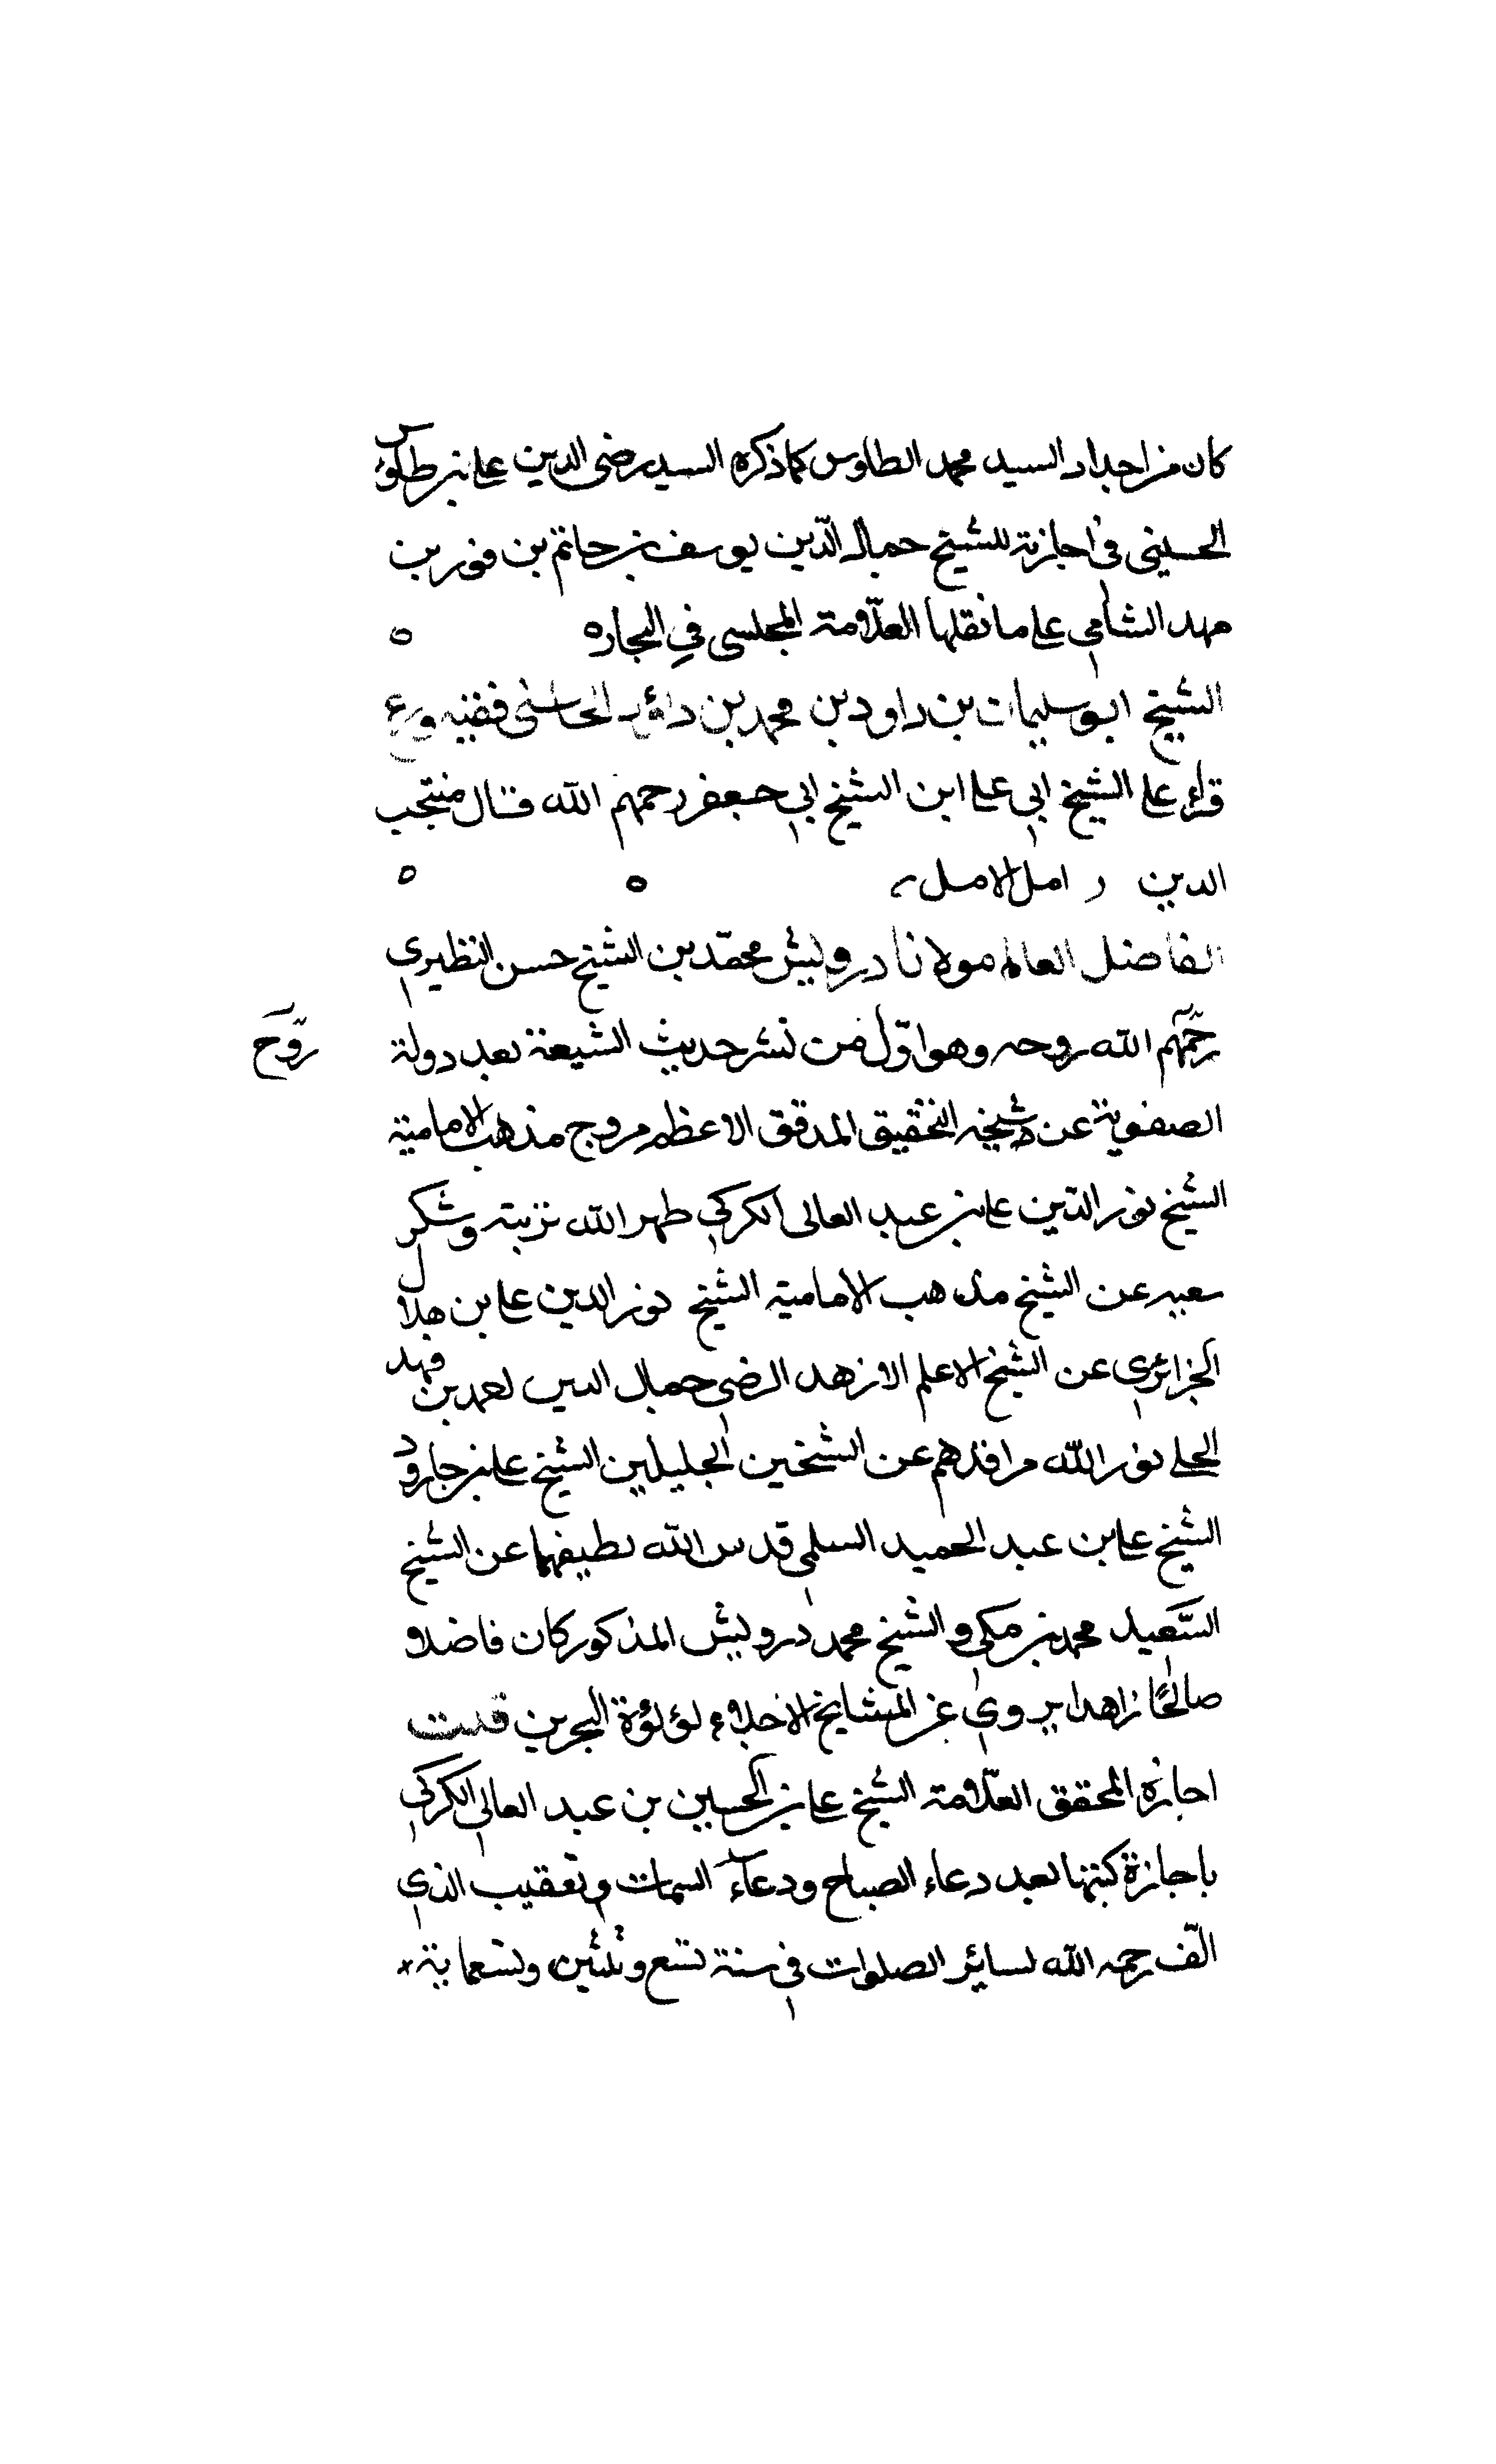 كان من اجداد السيد محمد الطاوس كما ذكره السيد رضى الدين على بن طاوس
الحسينى فى اجازته للشيخ جمال الدّين يوسف بن حاتم بن فوز بن
مهد الشامى على ما نقلها العلّامة المجلسى في البحار ه ه
الشيخ ابو سليمان بن داود بن محمد بن داود الحاسنى فقيه ورع
قراء على الشيخ ابى على ابن الشيخ ابى جعفر رحمهم الله قال منتجب
الدين ر امل الامل ه ه
الفاضل العالم مولانا درويش محمّد بن الشيخ حسن النظيرى
رحمّهم الله روحه وهو اوّل من نشر حديث الشيعة بعد دولة
روّح
الصفوية عن شيخه التحقيق المدقق الاعظم مروج مذهب الامامية
الشيخ نور الدّين على بن عبد العالى الكركى طهر الله تربته وشكر
سعيه عن الشيخ مذهب الامامية الشيخ نور الدين على بن هلال
الجزائرى عن الشيخ الاعلم الازهد الرضى جمال الدين احمد بن فهد
الحلى نور الله مراقدهم عن الشخين الجليلين الشيخ على بن جارود
الشيخ على بن عبد الحميد السلمى قدس الله لطيفهما عن الشيخ
السَّعيد محمد بن مكى والشيخ محمد درويش المذكور كان فاضلا و
صالحًا زاهدا يروى عن المشايخ الاجلاء لؤلؤة البحرين قلت
اجازه المحقق العلّامة الشيخ على بن الحسين بن عبد العالى الكركى
باجازة كتبها بعد دعاء الصباح ودعاء السمات وتعقيب الذى
الّف رحمه الله لسائر الصلوات فى سنة تسع وثلثين وتسعماية